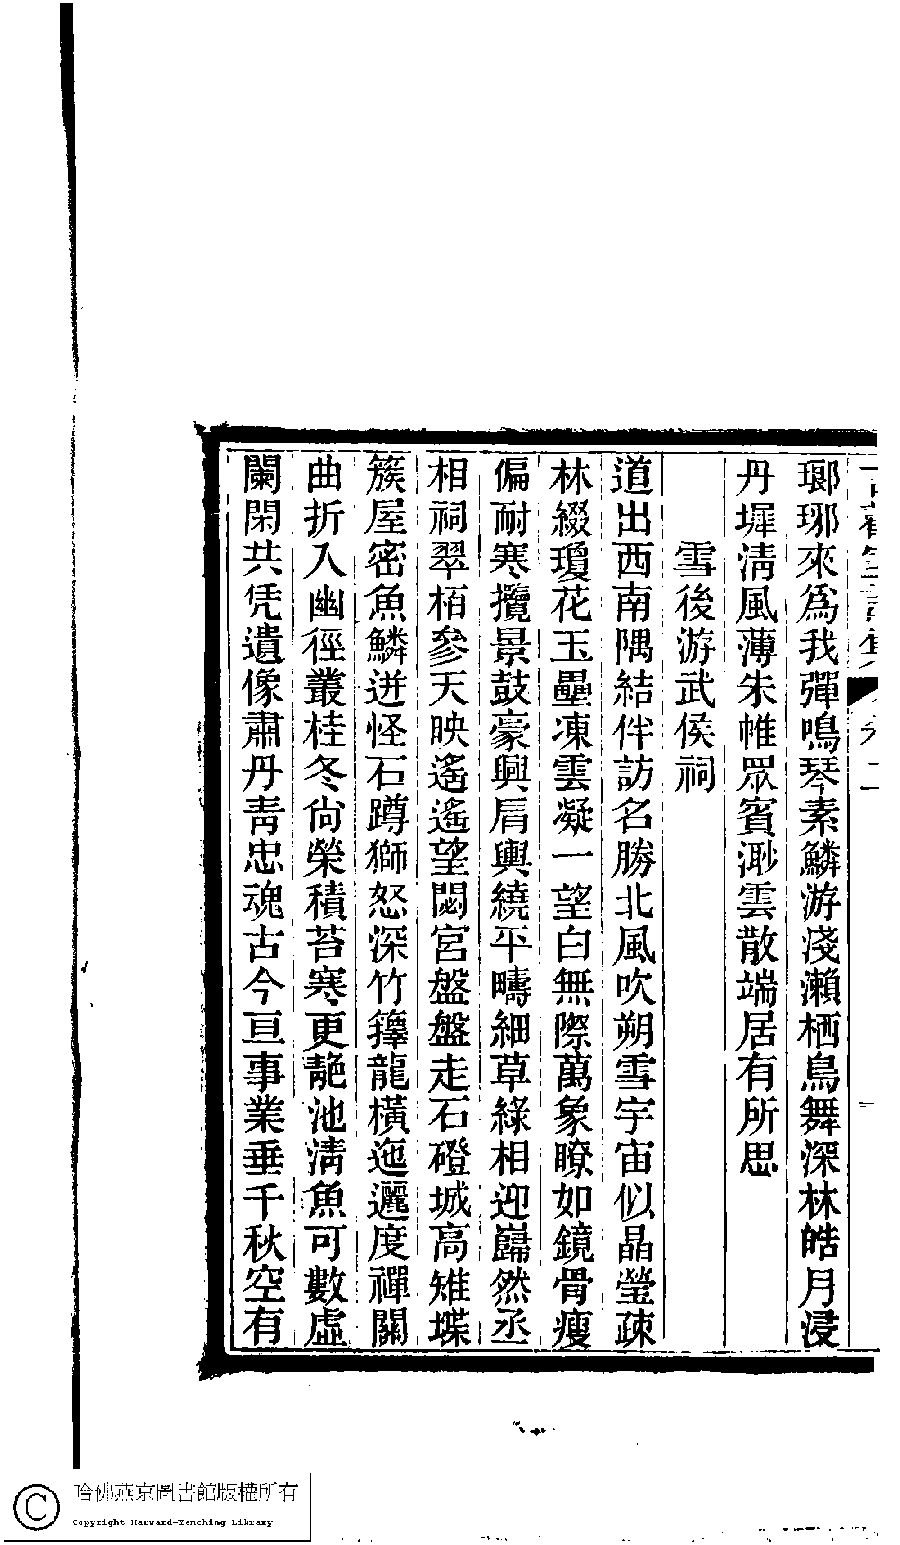 瑯琊來爲我彈鳴琴素鱗游淺瀨栖鳥舞深林皓月浸
丹墀淸風薄朱帷眾賓渺雲散端居有所思
雪後游武侯祠
道出西南隅結伴訪名勝北風吹朔雪宇宙似晶瑩疎
林綴瓊花玉壘凍雲凝一望白無際萬象瞭如鏡骨瘦
偏耐寒攬景鼓豪興肩輿繞平疇細草綠相迎巋然丞
相祠翠栢參天映遙遙望閟宮盤盤走石磴城高雉堞
簇屋密魚鱗迸怪石蹲獅怒深竹籜龍橫迤邐度禪關
曲折入幽徑叢桂冬尙榮積苔寒更靘池淸魚可數虛
闌閑共凭遺像肅丹靑忠魂古今亘事業垂千秋空有
哈佛燕京圖書館版權所有
Copyright Harvard-Yenching Library